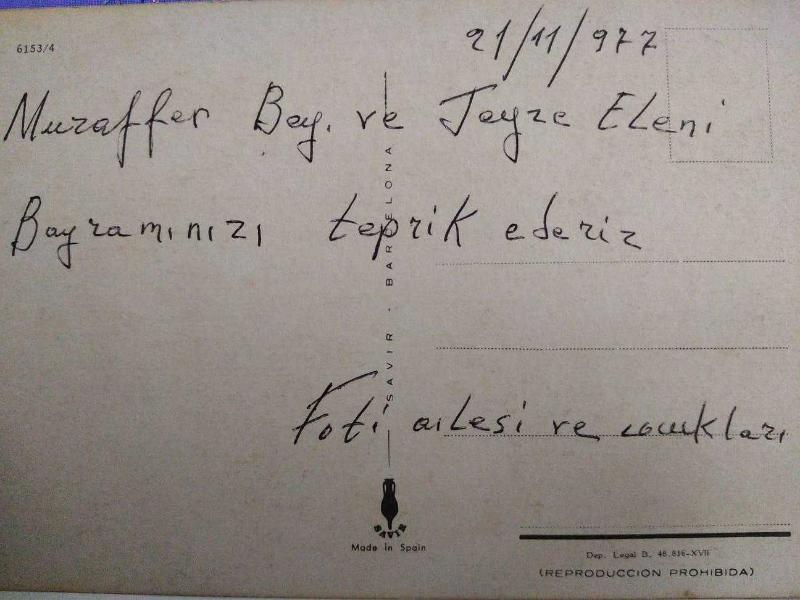 6153/4
21/11/977
Muzaffer Bey. ve Teyze Eleni
Bayramınızı teprik ederiz
SAVIR - BARCELONA
Foti ailesi ve cocukları
SAVIR
Made in Spain
Dep. Legal B. 48.836-XVII
(REPRODUCCION PROHIBIDA)